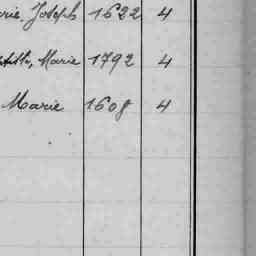 Joseph 1622 4
Marie 1792 4
Marie 1608 4